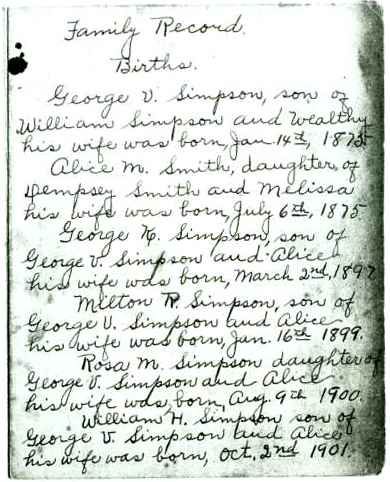 Family Record.
Births.
George V. Simpson, son of
William Simpson and Wealthy
his wife was born, Jan. 14th, 1875
Alice M. Smith, daughter of
Dempsey Smith and Melissa
his wife was born, July 6th, 1875
George N. Simpson, son of
George V. Simpson and Alice
his wife was born, March 2nd, 1897
Milton R. Simpson, son of
George V. Simpson and Alice
his wife was born, Jan. 16th 1899.
Rosa M. Simpson daughter of
George V. Simpson and Alice
his wife was born, Aug. 9th 1900.
William H. Simpson son of
George V. Simpson and Alice
his wife was born, Oct. 2nd 1901.